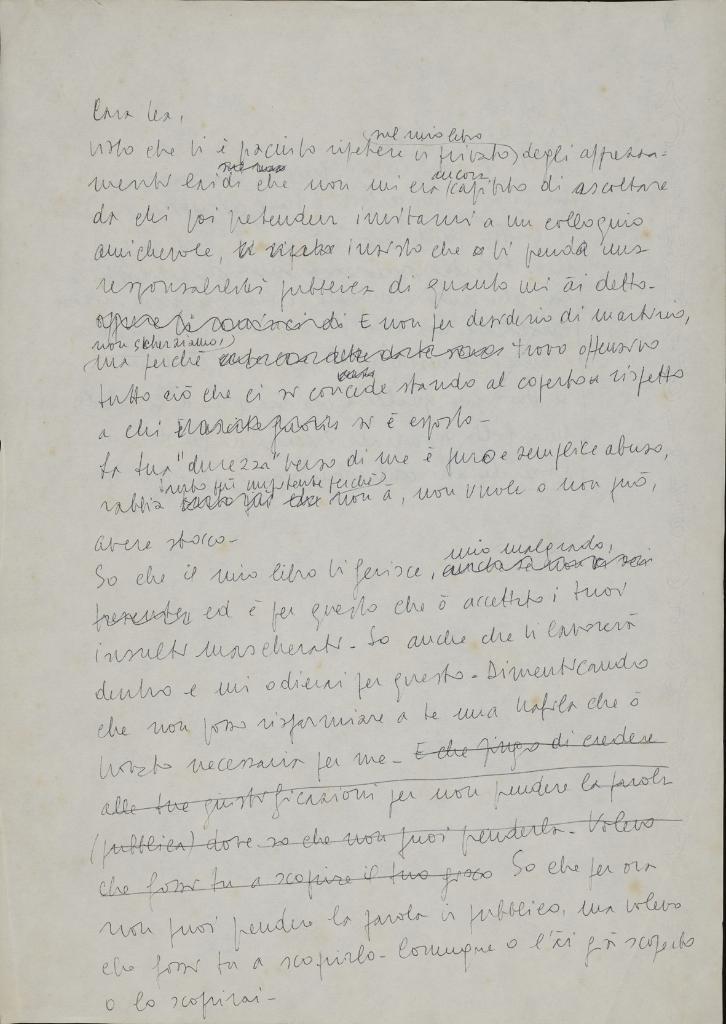 Cara Lea,
sul mio libro
visto che ti è piaciuto ripetere in privato degli apprezza-
ancora
menti laidi che non mi era capitato di ascoltare
da chi poi pretenden invitarmi a un colloquio
amichevole, insisto che ti prenda una
responsabilità pubblica di quanto mi ài detto.
E non per desiderio di martirio,
non scherziamo,
ma perché trovo offensivo
tutto ciò che ci si concede stando al coperto rispetto
a chi si è esposto -
La tua "durezza" verso di me è puro e semplice abuso,
molto più impotente perché
rabbia non à, non vuole o non può,
avere sbocco -
mio malgrado,
So che il mio libro ti ferisce,
ed è per questo che ò accettato i tuoi
insulti mascherati - So anche che ti lavorerà
dentro e mi odierai per questo - Dimenticando
che non posso risparmiare a te una trafila che ò
trovato necessaria per me - E che fingo di credere
alle tue giustificazioni per non prendere la parola
(pubblica) dove so che non puoi prenderla - Volevo
che fossi tu a scoprire il tuo gioco So che per ora
non puoi prendere la parola in pubblico, ma volevo
che fossi tu a scoprirlo - Comunque o l'ài già scoperto
o lo scoprirai -